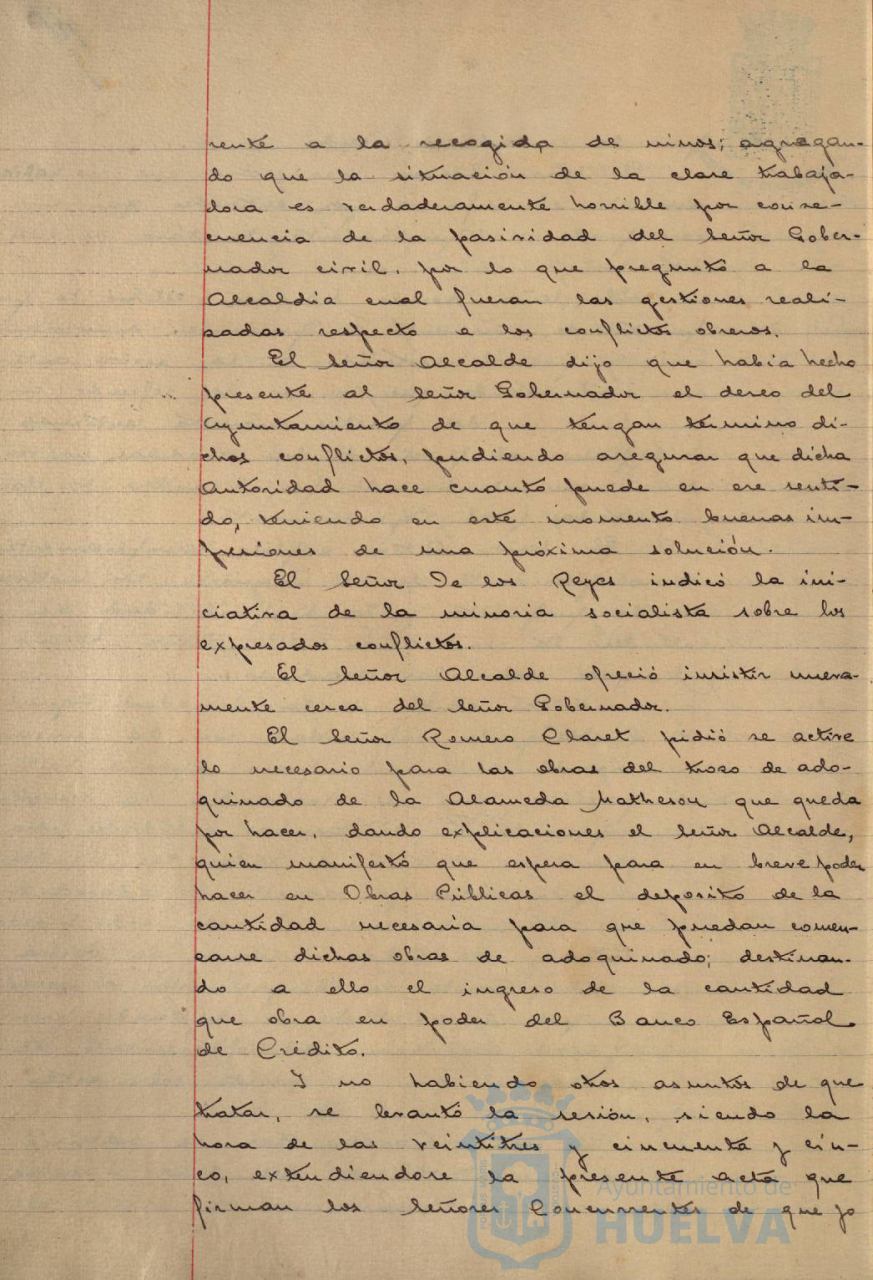 rente a la recogida de niños; agregan-
do que la situación de la clase trabaja-
dora es verdaderamente horrible por conse-
cuencia de la pasividad del Señor Gober-
nador civil, por lo que preguntó a la
Alcaldía cual fueran las gestiones reali-
zadas respecto a los conflictos obreros.
El Señor Alcalde dijo que había hecho
presente al Señor Gobernador el deseo del
Ayuntamiento de que tengan término di-
chos conflictos, pudiendo asegurar que dicha
Autoridad hace cuanto puede en ese senti-
do, teniendo en este momento buenas im-
presiones de una próxima solución.
El Señor De los Reyes indicó la ini-
ciativa de la minoria socialista sobre los
expresados conflictos.
El Señor Alcalde ofreció insistir nueva-
mente cerca del Señor Gobernador.
El Señor Romero Claret pidió se active
lo necesario para las obras del trozo de ado-
quinado de la Alameda Matheson que queda
por hacer, dando explicaciones el Señor Alcalde,
quien manifestó que espera para en breve poder
hacer en Obras Públicas el deposito de la
cantidad necesaria para que puedan comen-
zarse dichas obras de adoquinado; destinan-
do a ello el ingreso de la cantidad
que obra en poder del Banco Español
de Crédito.
Y no habiendo otros asuntos de que
tratar, se levantó la sesión, siendo la
hora de las veintitres y cincuenta y cin-
co, extendiendose la presente acta que
firman los Señores Concurrentes de que yo
Ayuntamiento de
HUELVA